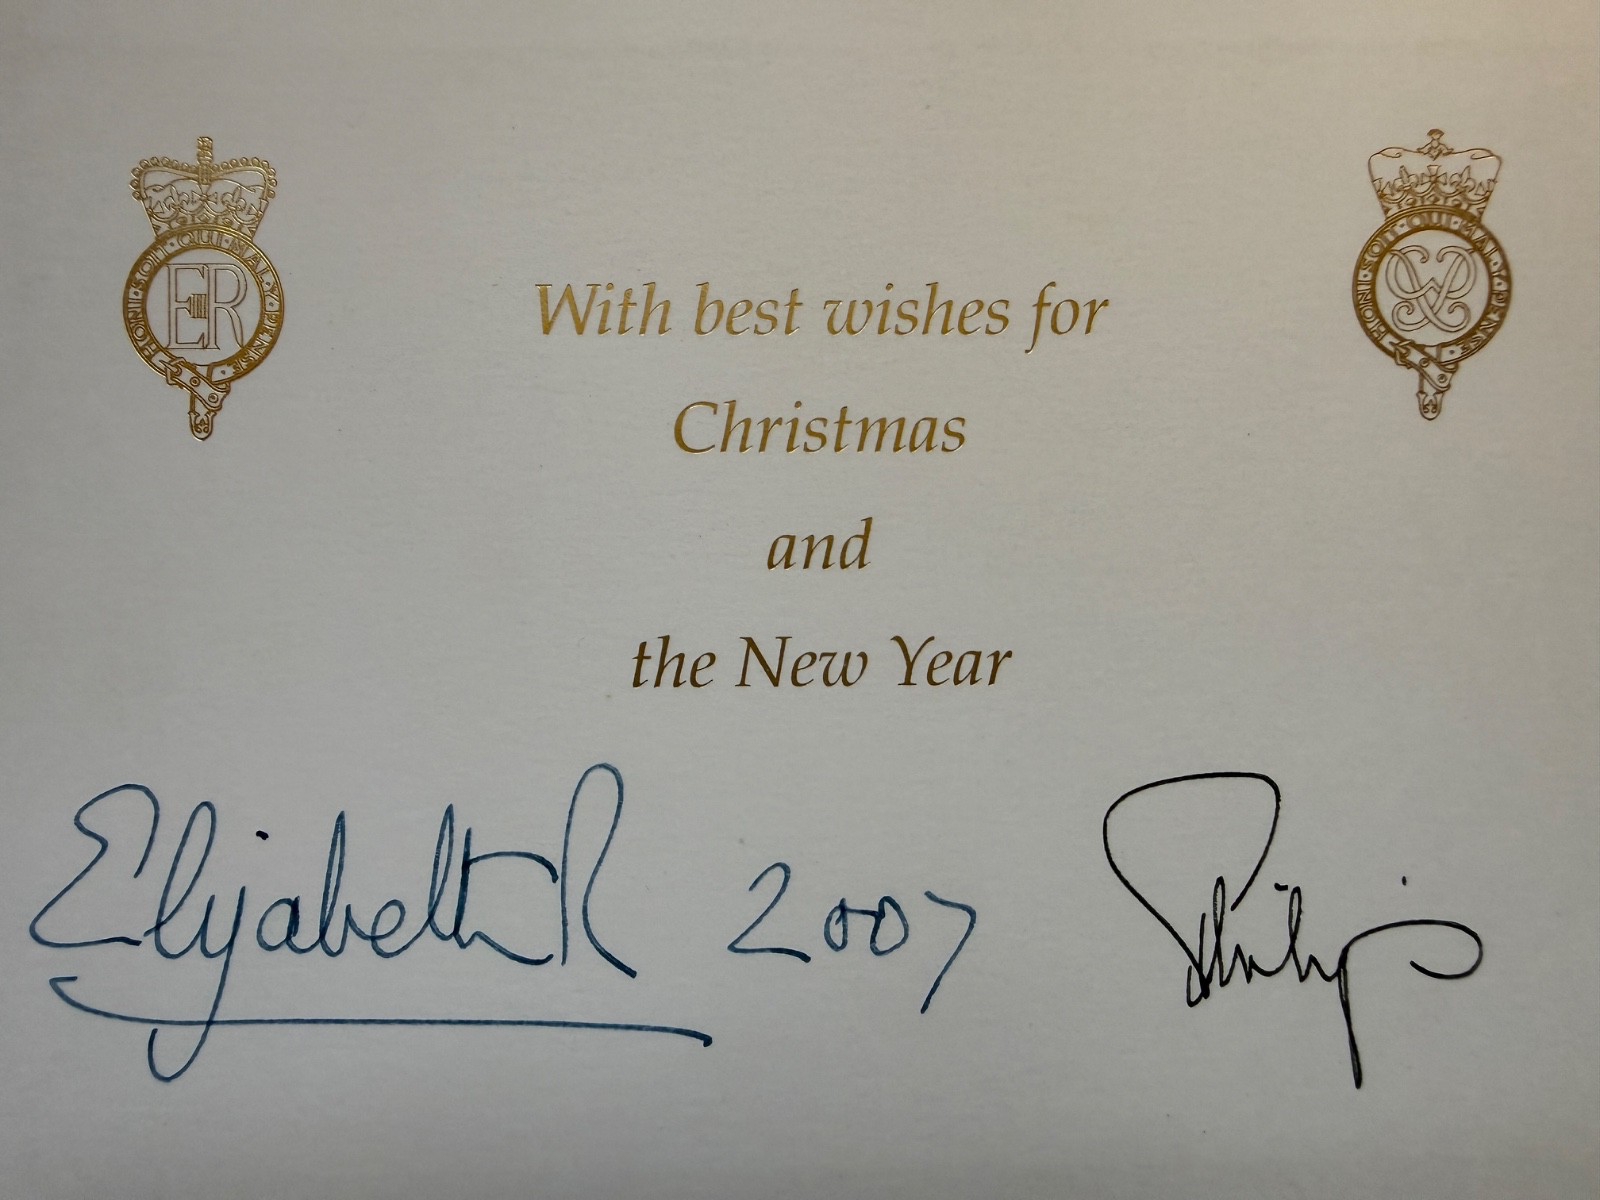 HONI·SOIT·QUI·MAL·Y·PENSE·
EIIR
HONI·SOIT·QUI·MAL·Y·PENSE·
With best wishes for
Christmas
and
the New Year
Elizabeth R 2007 Philip